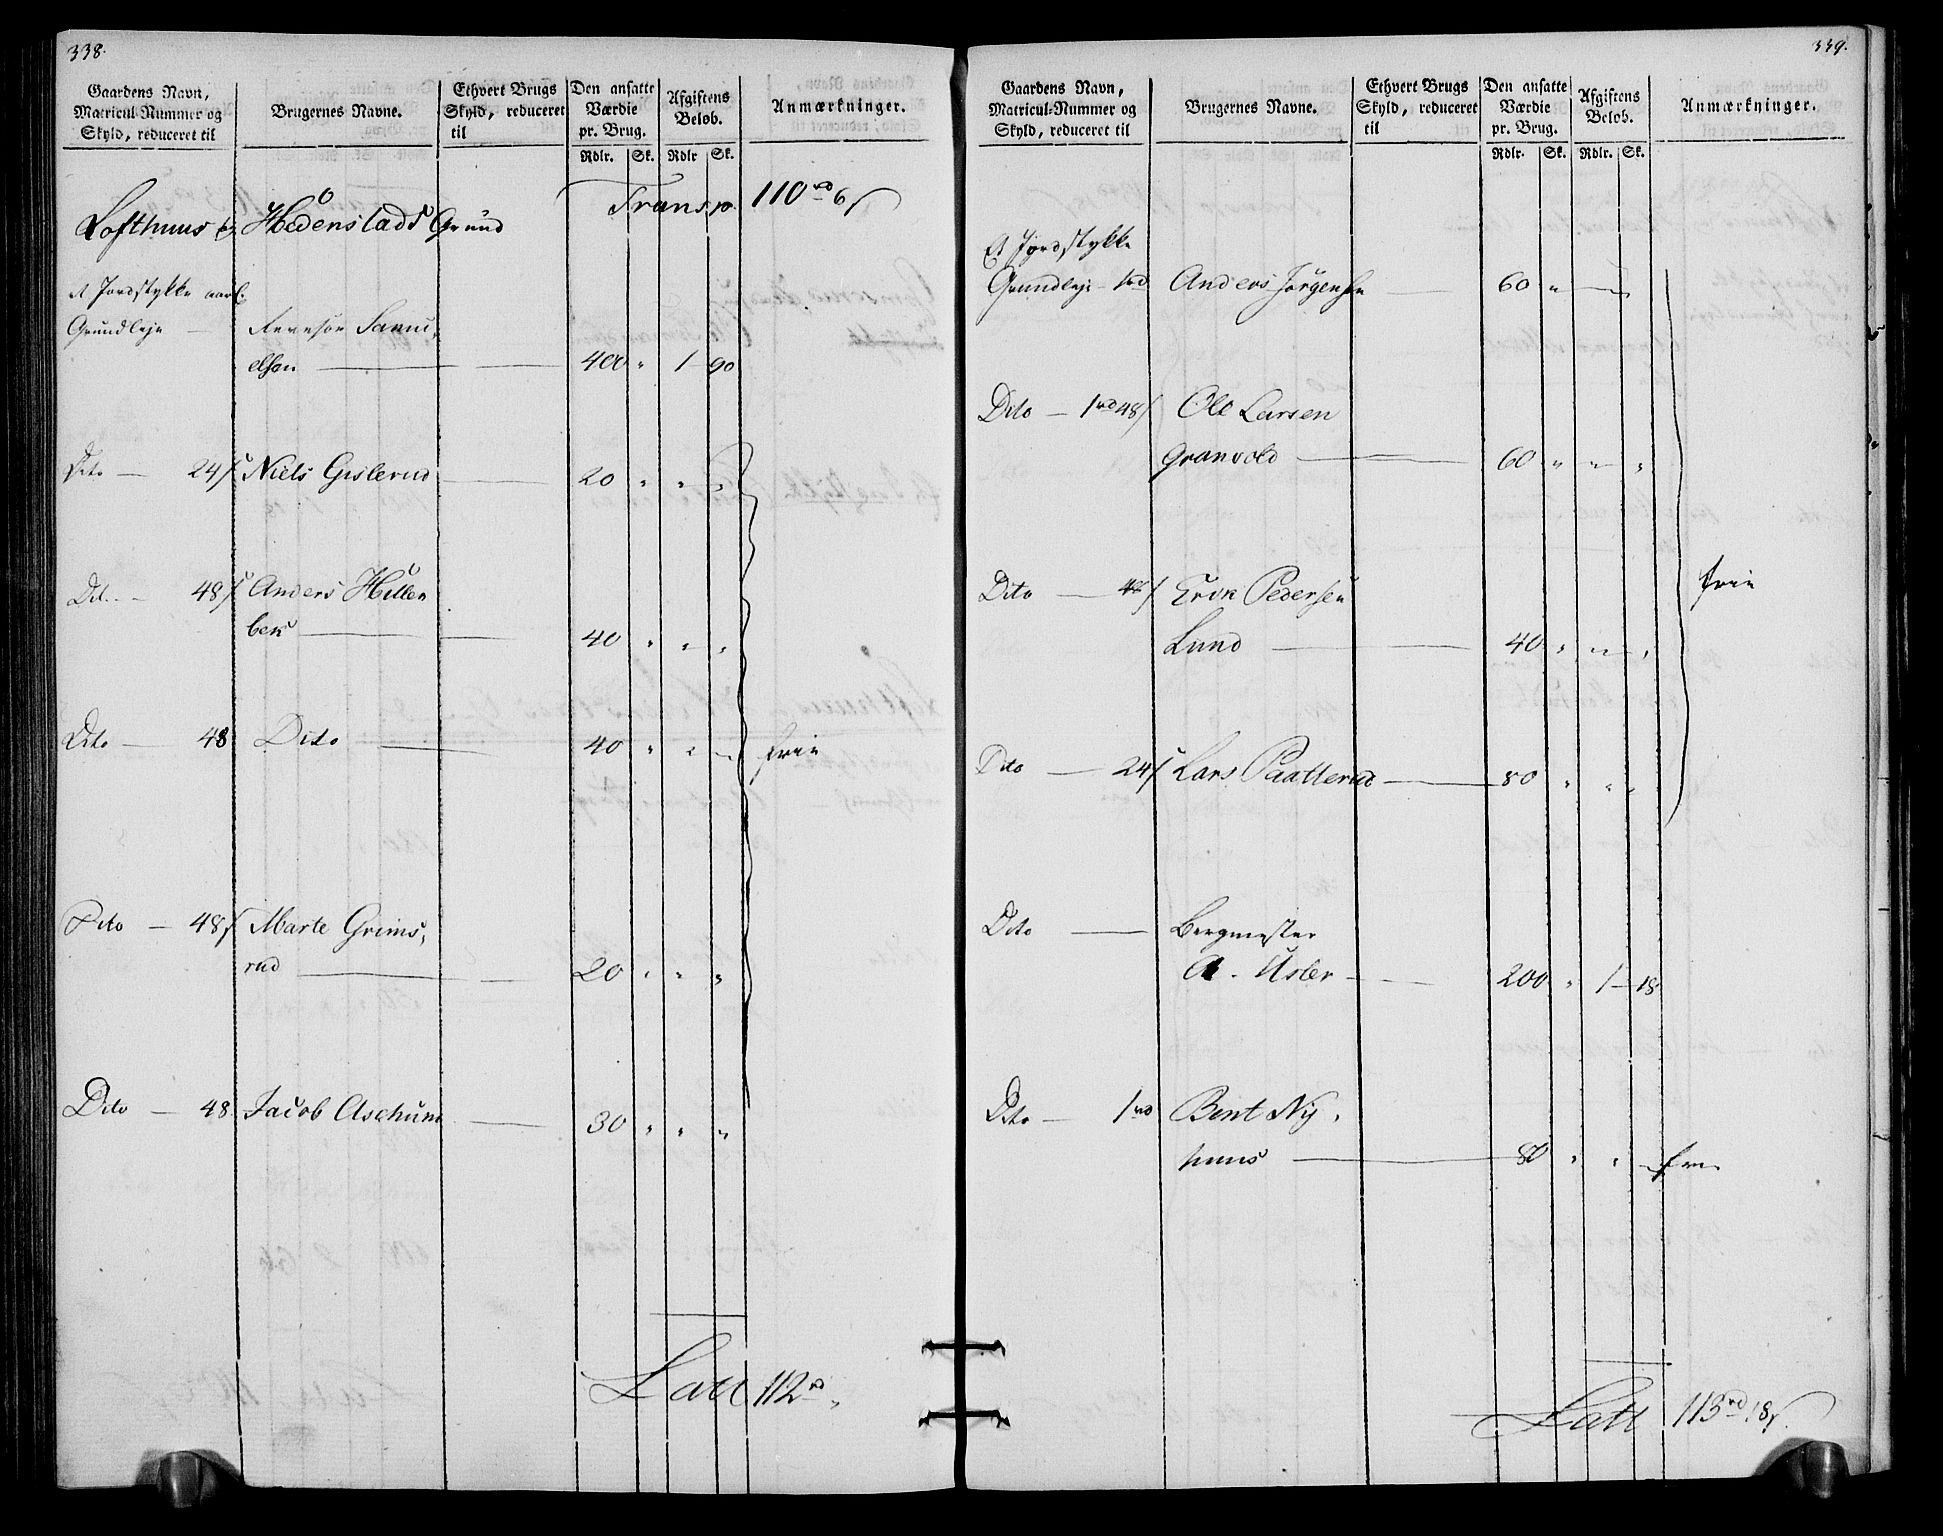 338.
Gaardens Navn,
Matricul-Nummer og
Skyld, reduceret til
Brugernes Navne.
Ethvert Brugs
Skyld, reduceret
til
Den ansatte
Værdie
pr. Brug.
Afgiftens
Beløb.
Anmærkninger.
Rdlr. Sk. Rdlr Sk.
Transp. 110 rd 6 s
Lofthuus og Hedenstads Grund
et Jordstykke aarl.
Grundleje — Samu-
elsen — 400 " 1-90
Dito — 24 s Niels Gislerud — 20 " " "
Dito — 48 s Anders Hillen
bek — 40 " " "
Dito — 48 Dito — 40 " " " frie
Dito — 48 s Marte Grims-
rud — 20 " " "
Dito — 48 Jacob Aschum — 30 " " "
Latt 112 rd "
339.
Gaardens Navn,
Matricul-Nummer og
Skyld, reduceret til
Brugernes Navne.
Ethvert Brugs
Skyld, reduceret
til
Den ansatte
Værdie
pr. Brug.
Afgiftens
Beløb.
Anmærkninger.
Rdlr. Sk. Rdlr. Sk.
Et Jordstykke
Grundleje - 1 rd Anders Jørgensen — 60 " —
Dito — 1 rd 48 s Ole Larsen
Granvold — 60 " " "
Dito — 48 s Erik Pedersen frie
Lund — 40 " " "
Dito — 24 s Lars Paatterud — 80 " " "
Dito — Bergmester
A. Usler — 200 " 1-18
Dito — 1 rd Bent Ny-
huus — 80 " " frie
Latt 113 rd 18 s.